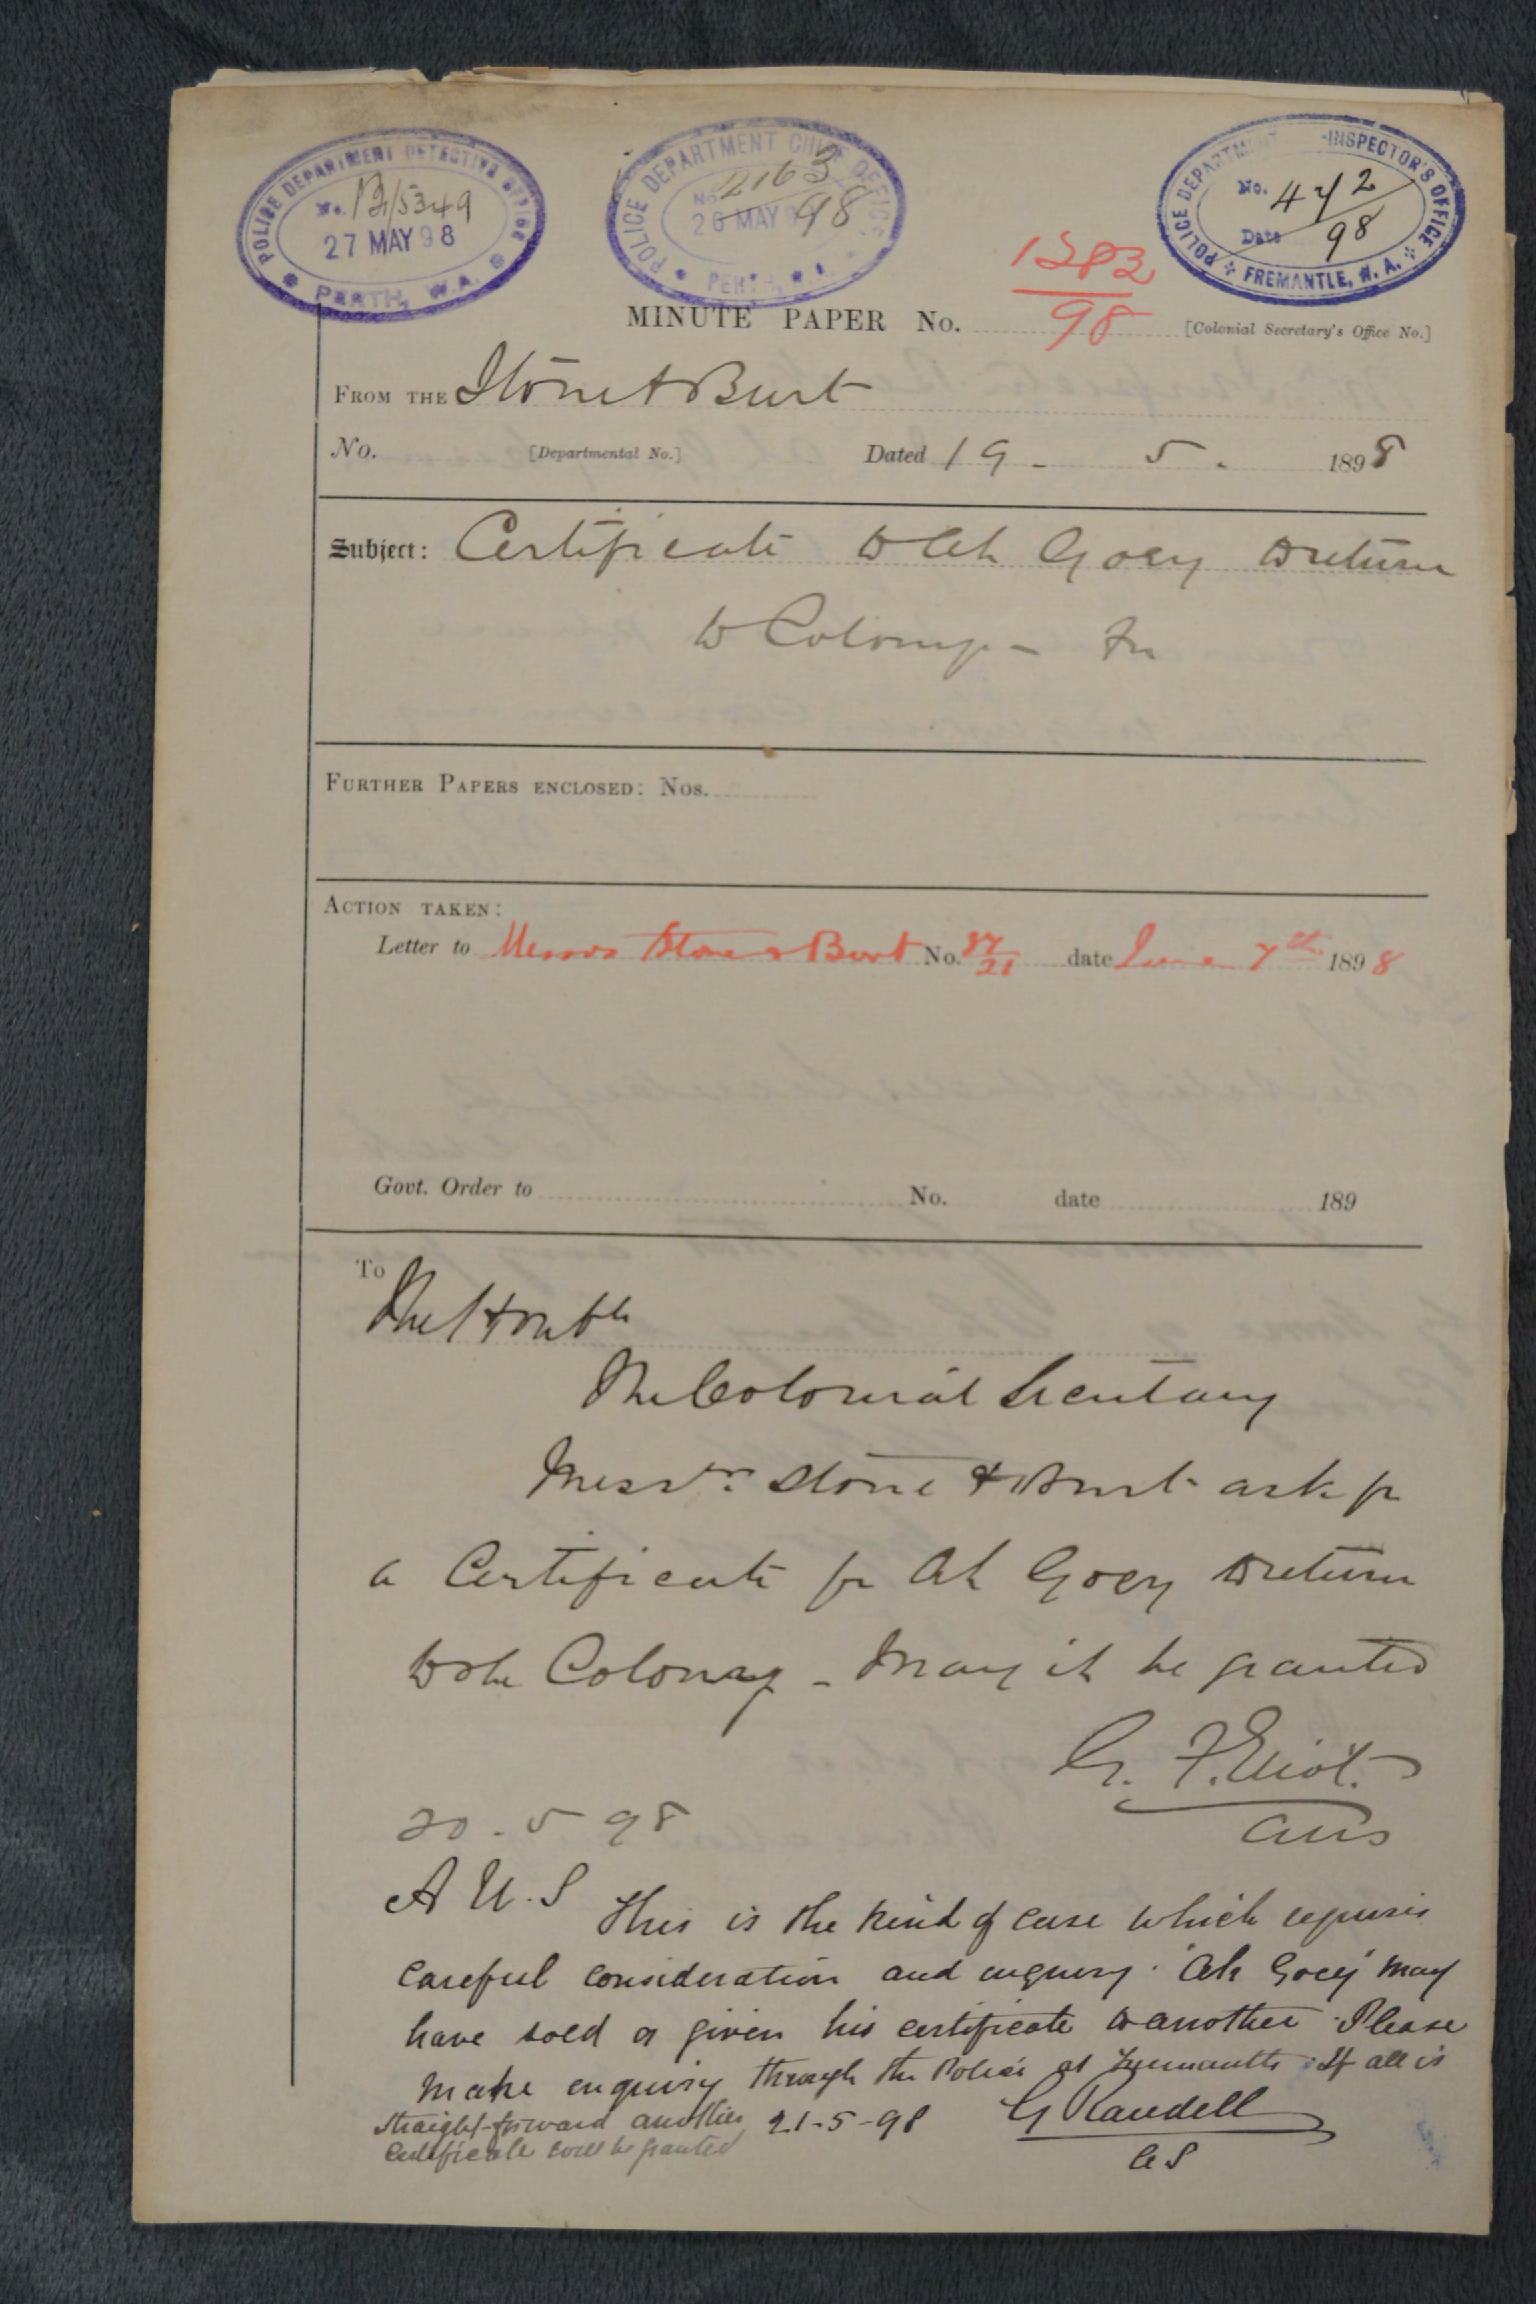 POLICE DEPARTMENT DETECTIVE OFFICE
No. 12/5349
27 MAY 98
PERTH, W.A.
POLICE DEPARTMENT CHIEF OFFICE
No. 2163/98
26 MAY 98
PERTH, W.A.
POLICE DEPARTMENT -INSPECTOR'S OFFICE
No. 442
Date 98
FREMANTLE, W.A.
MINUTE PAPER No. 1383/98 [Colonial Secretary's Office No.]
FROM THE Stone & Burt
No. [Departmental No.] Dated 19 - 5 . 1898
Subject: Certificate to Ah Goey to return
to Colony -
FURTHER PAPERS ENCLOSED: Nos.
ACTION TAKEN:
Letter to Messrs Stone & Burt No. 37/21 date June 7th 1898
Govt. Order to No. date 189
To
The Honble
The Colonial Secretary
Messrs. Stone & Burt ask for
a Certificate for Ah Goey to return
to the Colony - May it be granted
G. F. Eliot.
AUS
20 . 5 98
A U.S This is the kind of case which requires
careful consideration and enquiry. 'Ah Goey' may
have sold or given his certificate to another. Please
make enquiry through the Police at Fremantle. If all is
straight-forward another 21-5-98 G Randell
certificate will be granted
CS